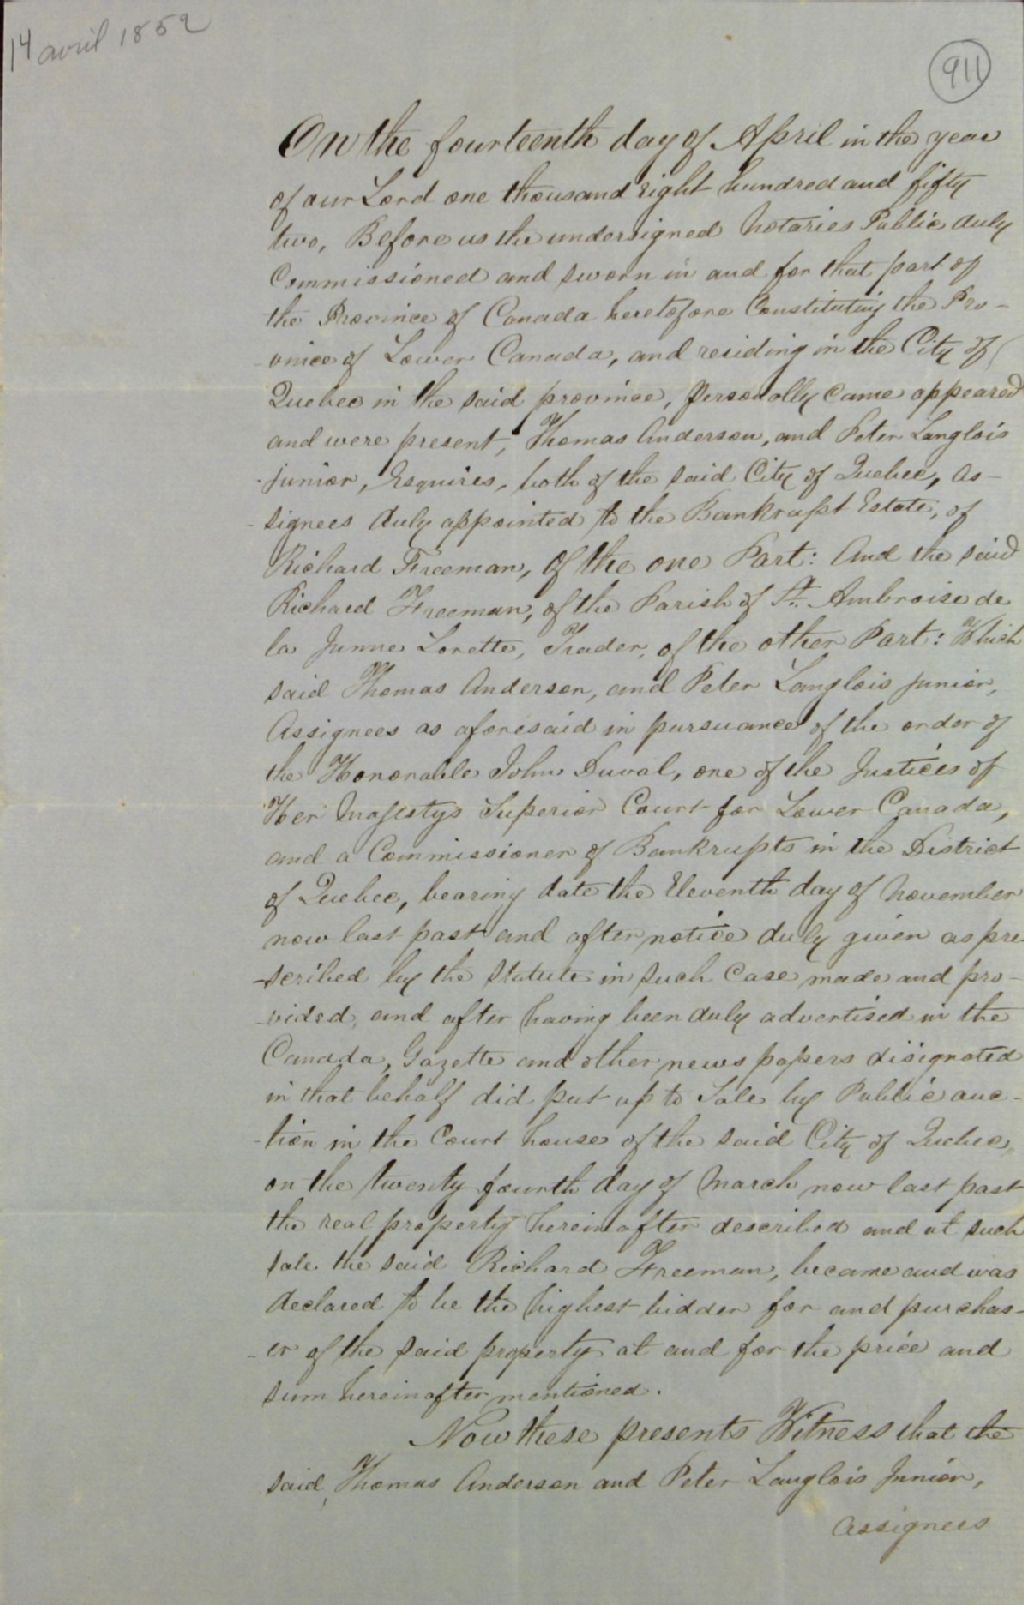 14 avril 1852
911
On the fourteenth day of April in the year
of our Lord one thousand eight hundred and fifty
two, Before us the undersigned Notaries Public duly
Commissioned and sworn in and for that part of
the Province of Canada heretofore Constituting the Pro-
-vince of Lower Canada, and residing in the City of
Quebec in the said province, Personally came appeared
and were present, Thomas Anderson, and Peter Langlois
junior, Esquires, both of the said City of Quebec, as-
-signees duly appointed to the Bankrupt Estate, of
Richard Freeman, of the one Part: And the said
Richard Freeman, of the Parish of St. Ambroise de
la Jeune Lorette, Trader, of the other Part: Which
said Thomas Anderson, and Peter Langlois junior,
Assignees as aforesaid in pursuance of the order of
the Honorable John Duval, one of the Justices of
Her Majestys Superior Court for Lower Canada,
and a Commissioner of Bankrupts in the District
of Quebec, bearing date the Eleventh day of November
now last past and after notice duly given as pre
-scribed by the Statute in such Case made and pro-
-vided, and after having been duly advertised in the
Canada, Gazette and other news papers disignated
in that behalf did put up to Sale by Public auc-
-tion in the Court house of the said City of Quebec,
on the twenty fourth day of March now last past
the real property hereinafter described and at such
sale the said Richard Freeman, became and was
declared to be the highest bidder for and purchas-
-er of the said property at and for the price and
sum hereinafter mentioned.
Now these presents Witness that the
said, Thomas Anderson and Peter Langlois Junior,
Assignees